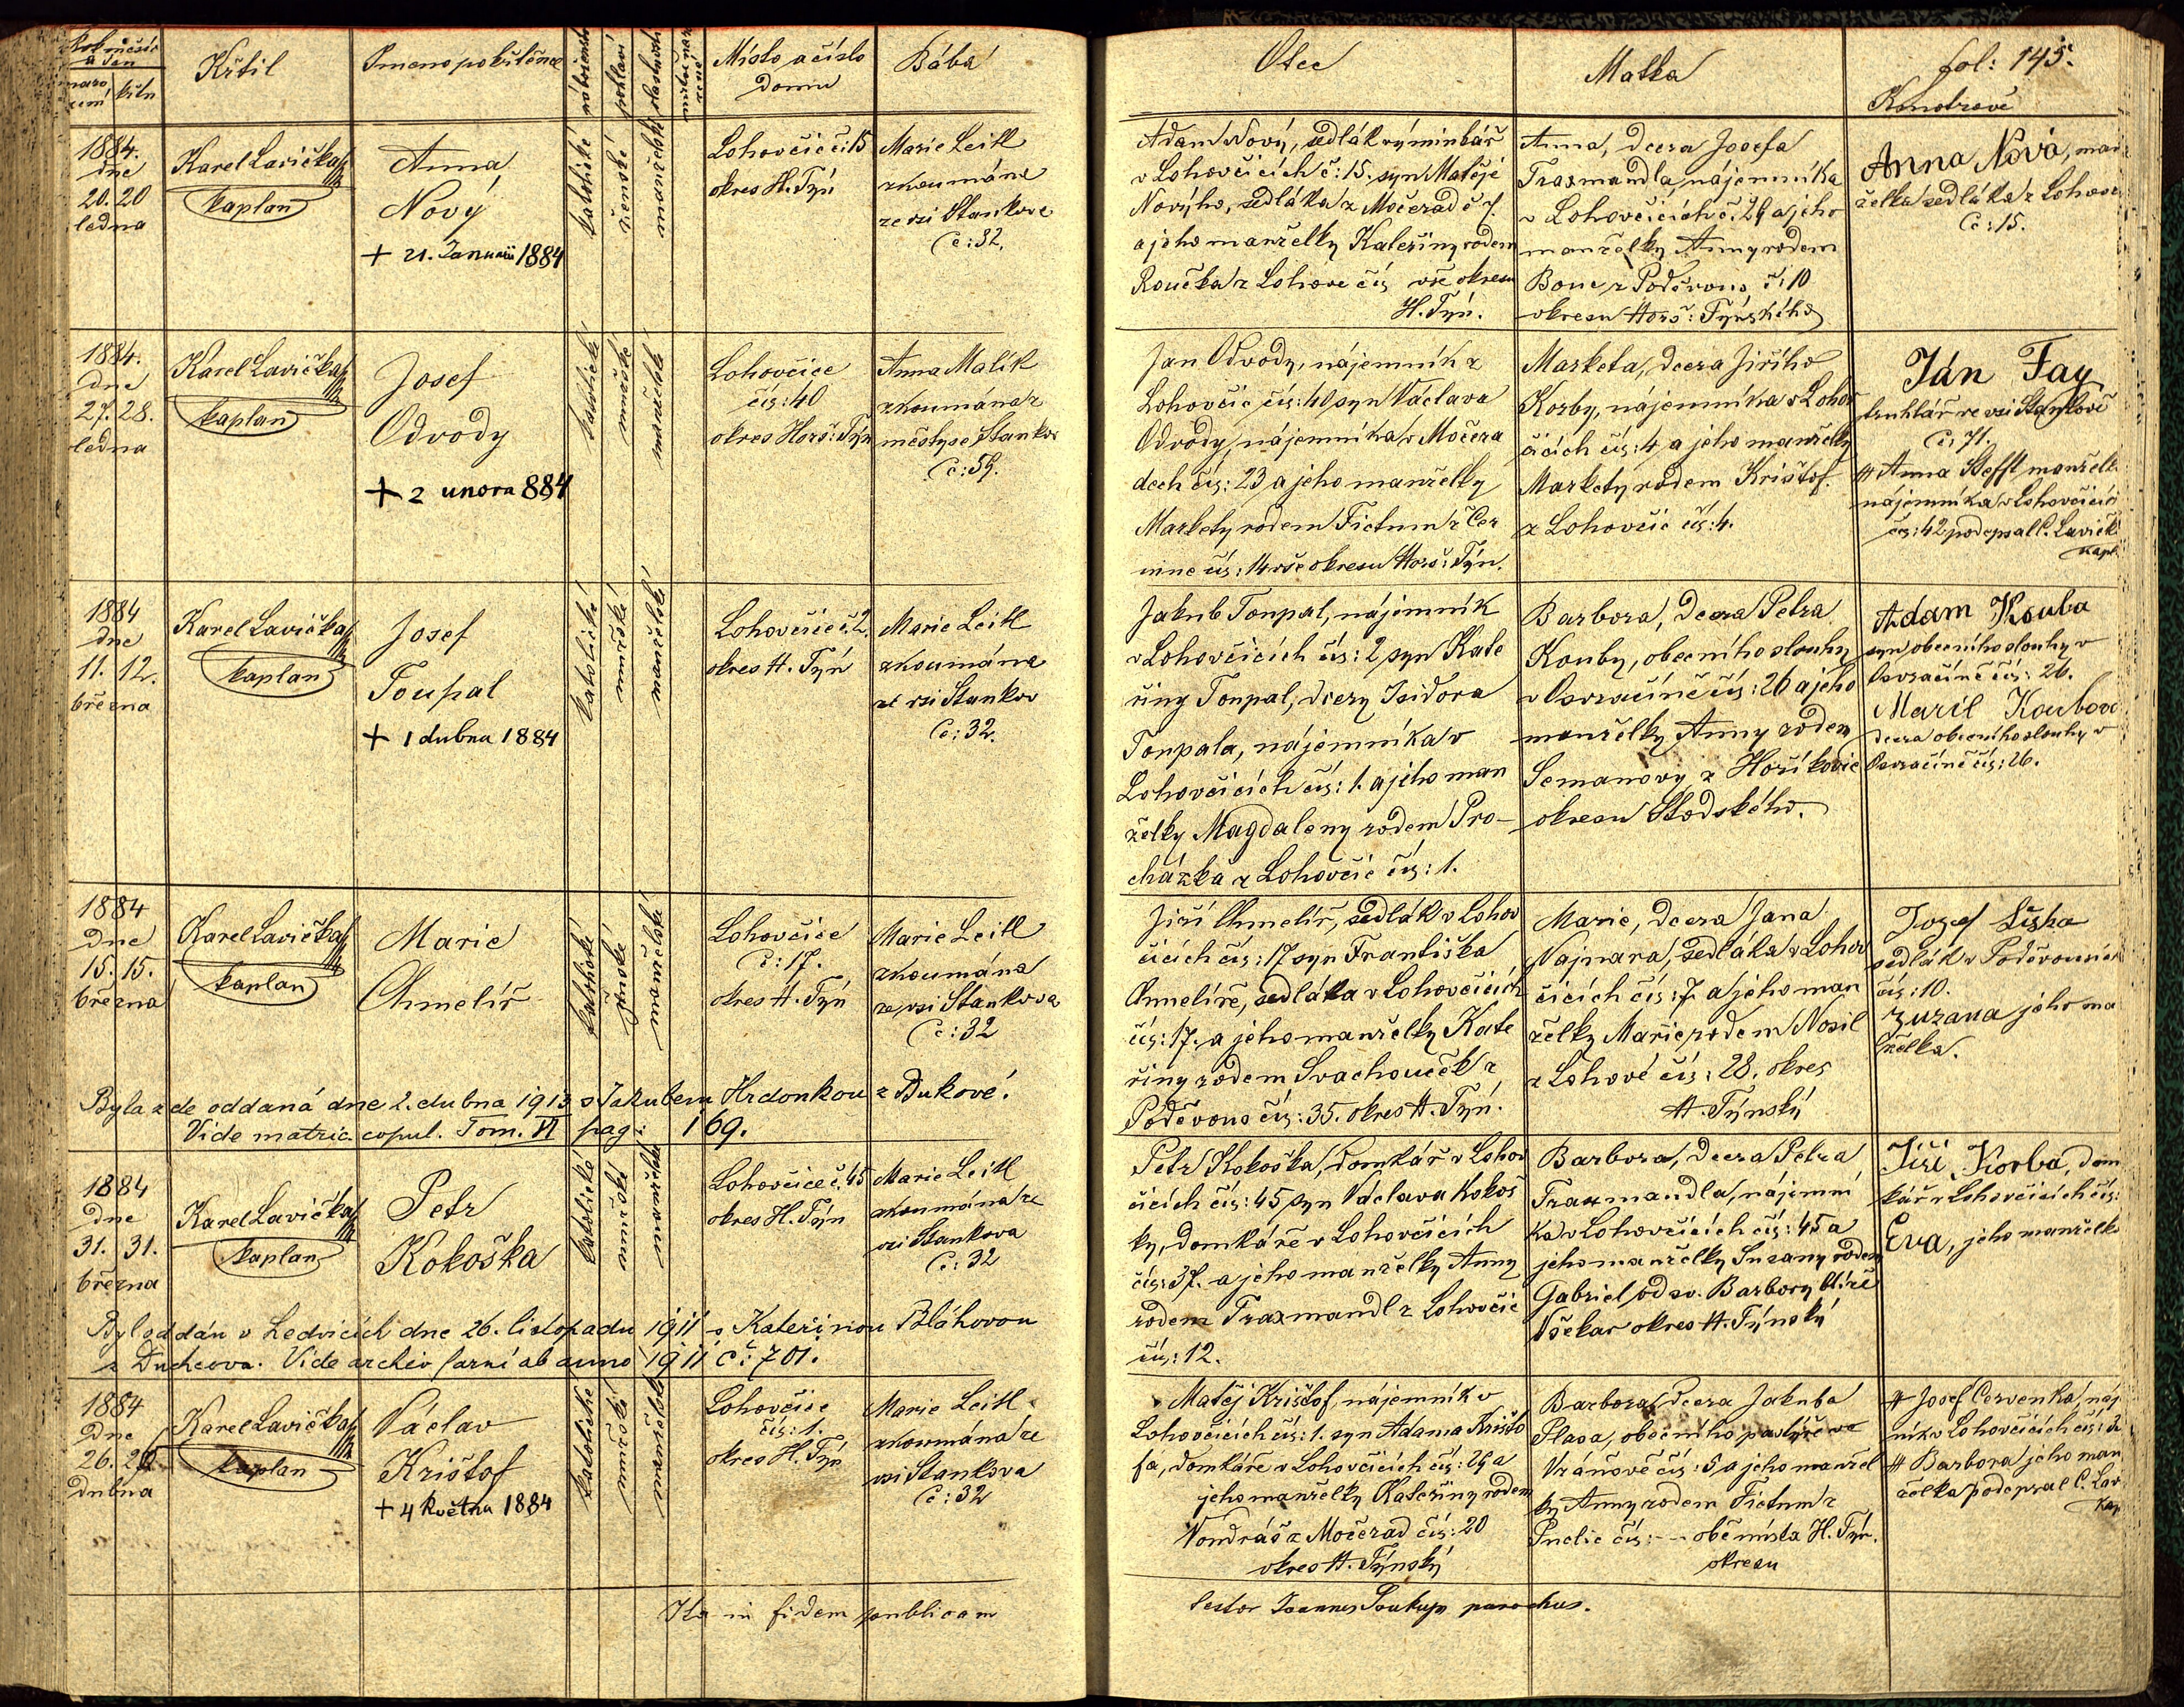 Křtil
Jméno pokřtěnce
Místo a číslo
domu
Bába
Otec
Matka
fol: 145.
Kmotrové
1884.
dne
20. 20
ledna
Karel Lavička
kaplan
Anna
Nový
+ 21. Januarii 1884
katolické
ženské
manželské
Lohovčic č: 15
okres H. Týn
Marie Leitl
zkoumána
ze vsi Stankova
č: 32.
Adam Nový, sedlák výminkář
v Lohovčicích č: 15. syn Matěje
Nového, sedláka z Močerad č 7.
a jeho manželky Kateřiny rodem
Roučka z Lohove čís vše okresu
H. Týn.
Anna, dcera Josefa
Traxmandla, nájemníka
v Lohovčicích č. 29 a jeho
manželky Anny rodem
z Poděvous č: 10
okresu Horš: Týnského
Anna Nová, man
želka sedláka z Lohovč
č: 15.
1884.
dne
27. 28.
ledna
Karel Lavička
kaplan
Josef
Odvody
+ 2 unora 884
katolické
mužské
manželské
Lohovčice
čís: 40
okres Horš: Týn
Anna Malík
zkoumána z
městyse Stankov
č: 59.
Jan Odvody, nájemník z
Lohovčic čís: 40 syn Václava
Odvody, nájemníka v Močera
dech čís: 23 a jeho manželky
Markety rodem Fictum z Čer
nine čís: 14 vše okresu Horš: Týn.
Marketa, dcera Jiřího
Korby, nájemníka v Lohov
čicích čís: 4 a jeho manželky
Markety rodem Krištof.
z Lohovčic čís: 4.
Ján Fay
truhlář ve vsi Stankově
č: 71.
# Anna Steffl manželka
nájemníka v Lohovčicích
čís: 42 podepsal C. Lavičk
kapl.
1884
dne
11. 12.
března
Karel Lavička
kaplan
Josef
Toupal
+ 1 dubna 1884
katolické
mužské
manželské
Lohovčice č. 2.
okres H. Týn
Marie Leitl
zkoumána
ze vsi Stankov
č: 32.
Jakub Toupal, nájemník
v Lohovčicích čís: 2 syn Kate
řiny Toupal, dcery Isidora
Toupala, nájemníka v
Lohovčicích čís: 1. a jeho man
želky Magdaleny rodem Pro-
cházka z Lohovčic čís: 1.
Barbora, dcera Petra
Kouby, obecního slouhy
v Osvračíně čís: 26 a jeho
manželky Anny rodem
Semanovy z Hoříkovic
okresu Stodského.
Adam Kouba
syn obecního slouhy v
Osvračíně čís: 26.
Marií Koubová
dcera obecního slouhy v
Osvračíně čís: 26.
1884
dne
15. 15.
března
Karel Lavička
kaplan
Marie
Chmelíř
katolické
ženské
manželské
Lohovčice
č: 17.
okres H. Týn
Marie Leitl
zkoumána
ze vsi Stankova
č: 32
Jiří Chmelíř, sedlák v Lohov
čicích čís: 17 syn Františka
Chmelíře, sedláka v Lohovčicích
čís: 17. a jeho manželky Kate
řiny rodem Svachouček z
Poděvous čís: 35. okres H. Týn.
Marie, dcera Jana
Najmara, sedláka v Lohov
čicích čís: 7 a jeho man
želky Marie rodem Nosil
z Lohové čís: 28. okres
H. Týnský
Jozef Liška
sedlák v Poděvousích
čís: 10.
Zuzana jeho ma
nželka.
Byla zde oddaná dne 2. dubna 1913 s Jakubem Hrdonkou z Bukové.
Vide matric. copul. Tom. VI pag: 169.
1884
dne
31. 31.
března
Karel Lavička
kaplan
Petr
Kokoška
katolické
mužské
manželské
Lohovčice č. 45
okres H. Týn
Marie Leitl
zkoumána ze
vsi Stankova
č: 32
Petr Kokoška, domkář v Lohov
čicích čís: 45 syn Václava Kokoš
ky, domkáře v Lohovčicích
čís: 37. a jeho manželky Anny
rodem Traxmandl z Lohovčic
čís: 12.
Barbora, dcera Petra
Traxmandla, nájemní
ka v Lohovčicích čís: 45 a
jeho manželky Suzany rodem
Gabriel od sv. Barbory blíže
Všekar okres H. Týnský
Jiří Korba, dom
kář v Lohovčicích čís:
Eva, jeho manželka
Byl oddán v Ledvicích dne 26. listopadu 1911 s Kateřinou Bláhovou
z Duchcova. Vide archiv farní ab anno 1911 č: 701.
1884
dne
26.
dubna
Karel Lavička
kaplan
Václav
Krištof
+ 4 května 1884
katolické
mužské
manželské
Lohovčice
čís: 1.
okres H. Týn
Marie Leitl
zkoumána ze
vsi Stankova
č: 32
Matěj Krištof, nájemník v
Lohovčicích čís: 1. syn Adama Krišto
fa, domkáře v Lohovčicích čís: 29 a
jeho manželky Kateřiny rodem
Vondráš z Močerad čís: 20
okres H. Týnský
Barbora, dcera Jakuba
Plasa, obecního pastýře ve
Vránově čís: 5 a jeho manžel
ky Anny rodem Fictum z
Puclic čís: -- obě místa H. Týn.
okresu
# Josef Červenka, náj
ník v Lohovčicích čís:
# Barbora jeho man
želka podepsal C. Lav
kap
Ita in fidem publicam
testor Joannes Soukup parochus.